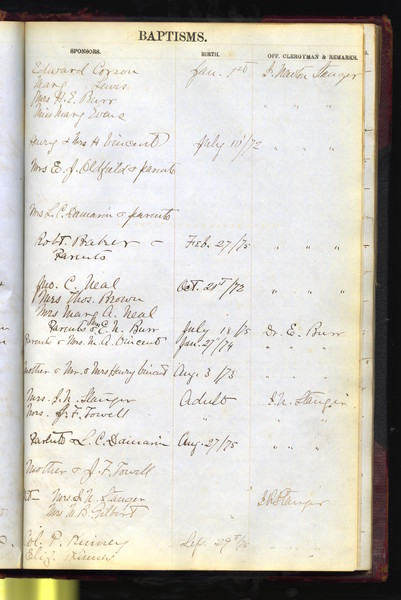 BAPTISMS.
SPONSORS. BIRTH. OFF. CLERGYMAN & REMARKS.
Edward Corson Jan. 1st J. Newton Stanger
Mary Lewis
Mrs H. E. Burr " " "
Miss Mary Evans
Henry & Mrs H Vincent July 10/72 " " "
Mrs E. J. Oldfield & parents
Mrs L. C. Damarin & parents
Robt. Baker & Feb. 27/75 " " "
Parents
Jno. C. Neal Oct. 21st/73 " " "
Mrs Thos. Brown
Mrs Mary A. Neal
Parents & Mrs E. N. Burr July 18/5 Dr. E. Burr
Parents & Mrs. M. A. Vincent Jan. 27/74 " " "
Mother & Mr. & Mrs Henry Vincent Aug 3/73 " " "
Mrs. J. N. Stanger Adult J. N. Stanger
Mrs. J. F. Towell " " " "
Parents & L. C. Damarin Aug. 27/75 " " "
Mother & J. F. Towell
Mrs J. N. Stanger " Stanger
Mrs M. B. Gilbert
Col. P. Kinney Sep. 29/75 " " "
Eliz. Kinney